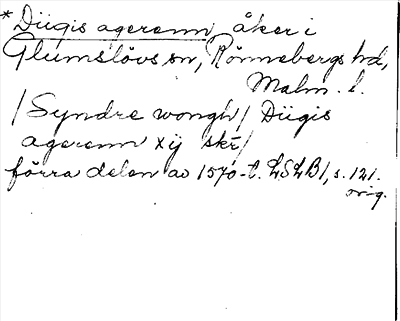 *Diigis agerenn, åker i
Glumslövs sn, Rönnebergs hd,
Malm. l.
/Syndre wongh/ Diigis
agerenn xij skr/
förra delen av 1570-t. LSLB1, s. 121.
orig.